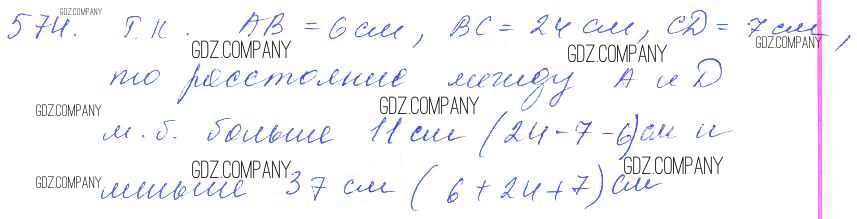 GDZ.COMPANY
574. Т.К. AB = 6 см, BC = 24 см, CD = 7 см,
GDZ.COMPANY GDZ.COMPANY GDZ.COMPANY
то расстояние между A и D
GDZ.COMPANY GDZ.COMPANY
м.б. больше 11 см (24-7-6) см и
GDZ.COMPANY GDZ.COMPANY GDZ.COMPANY
меньше 37 см (6+24+7) см